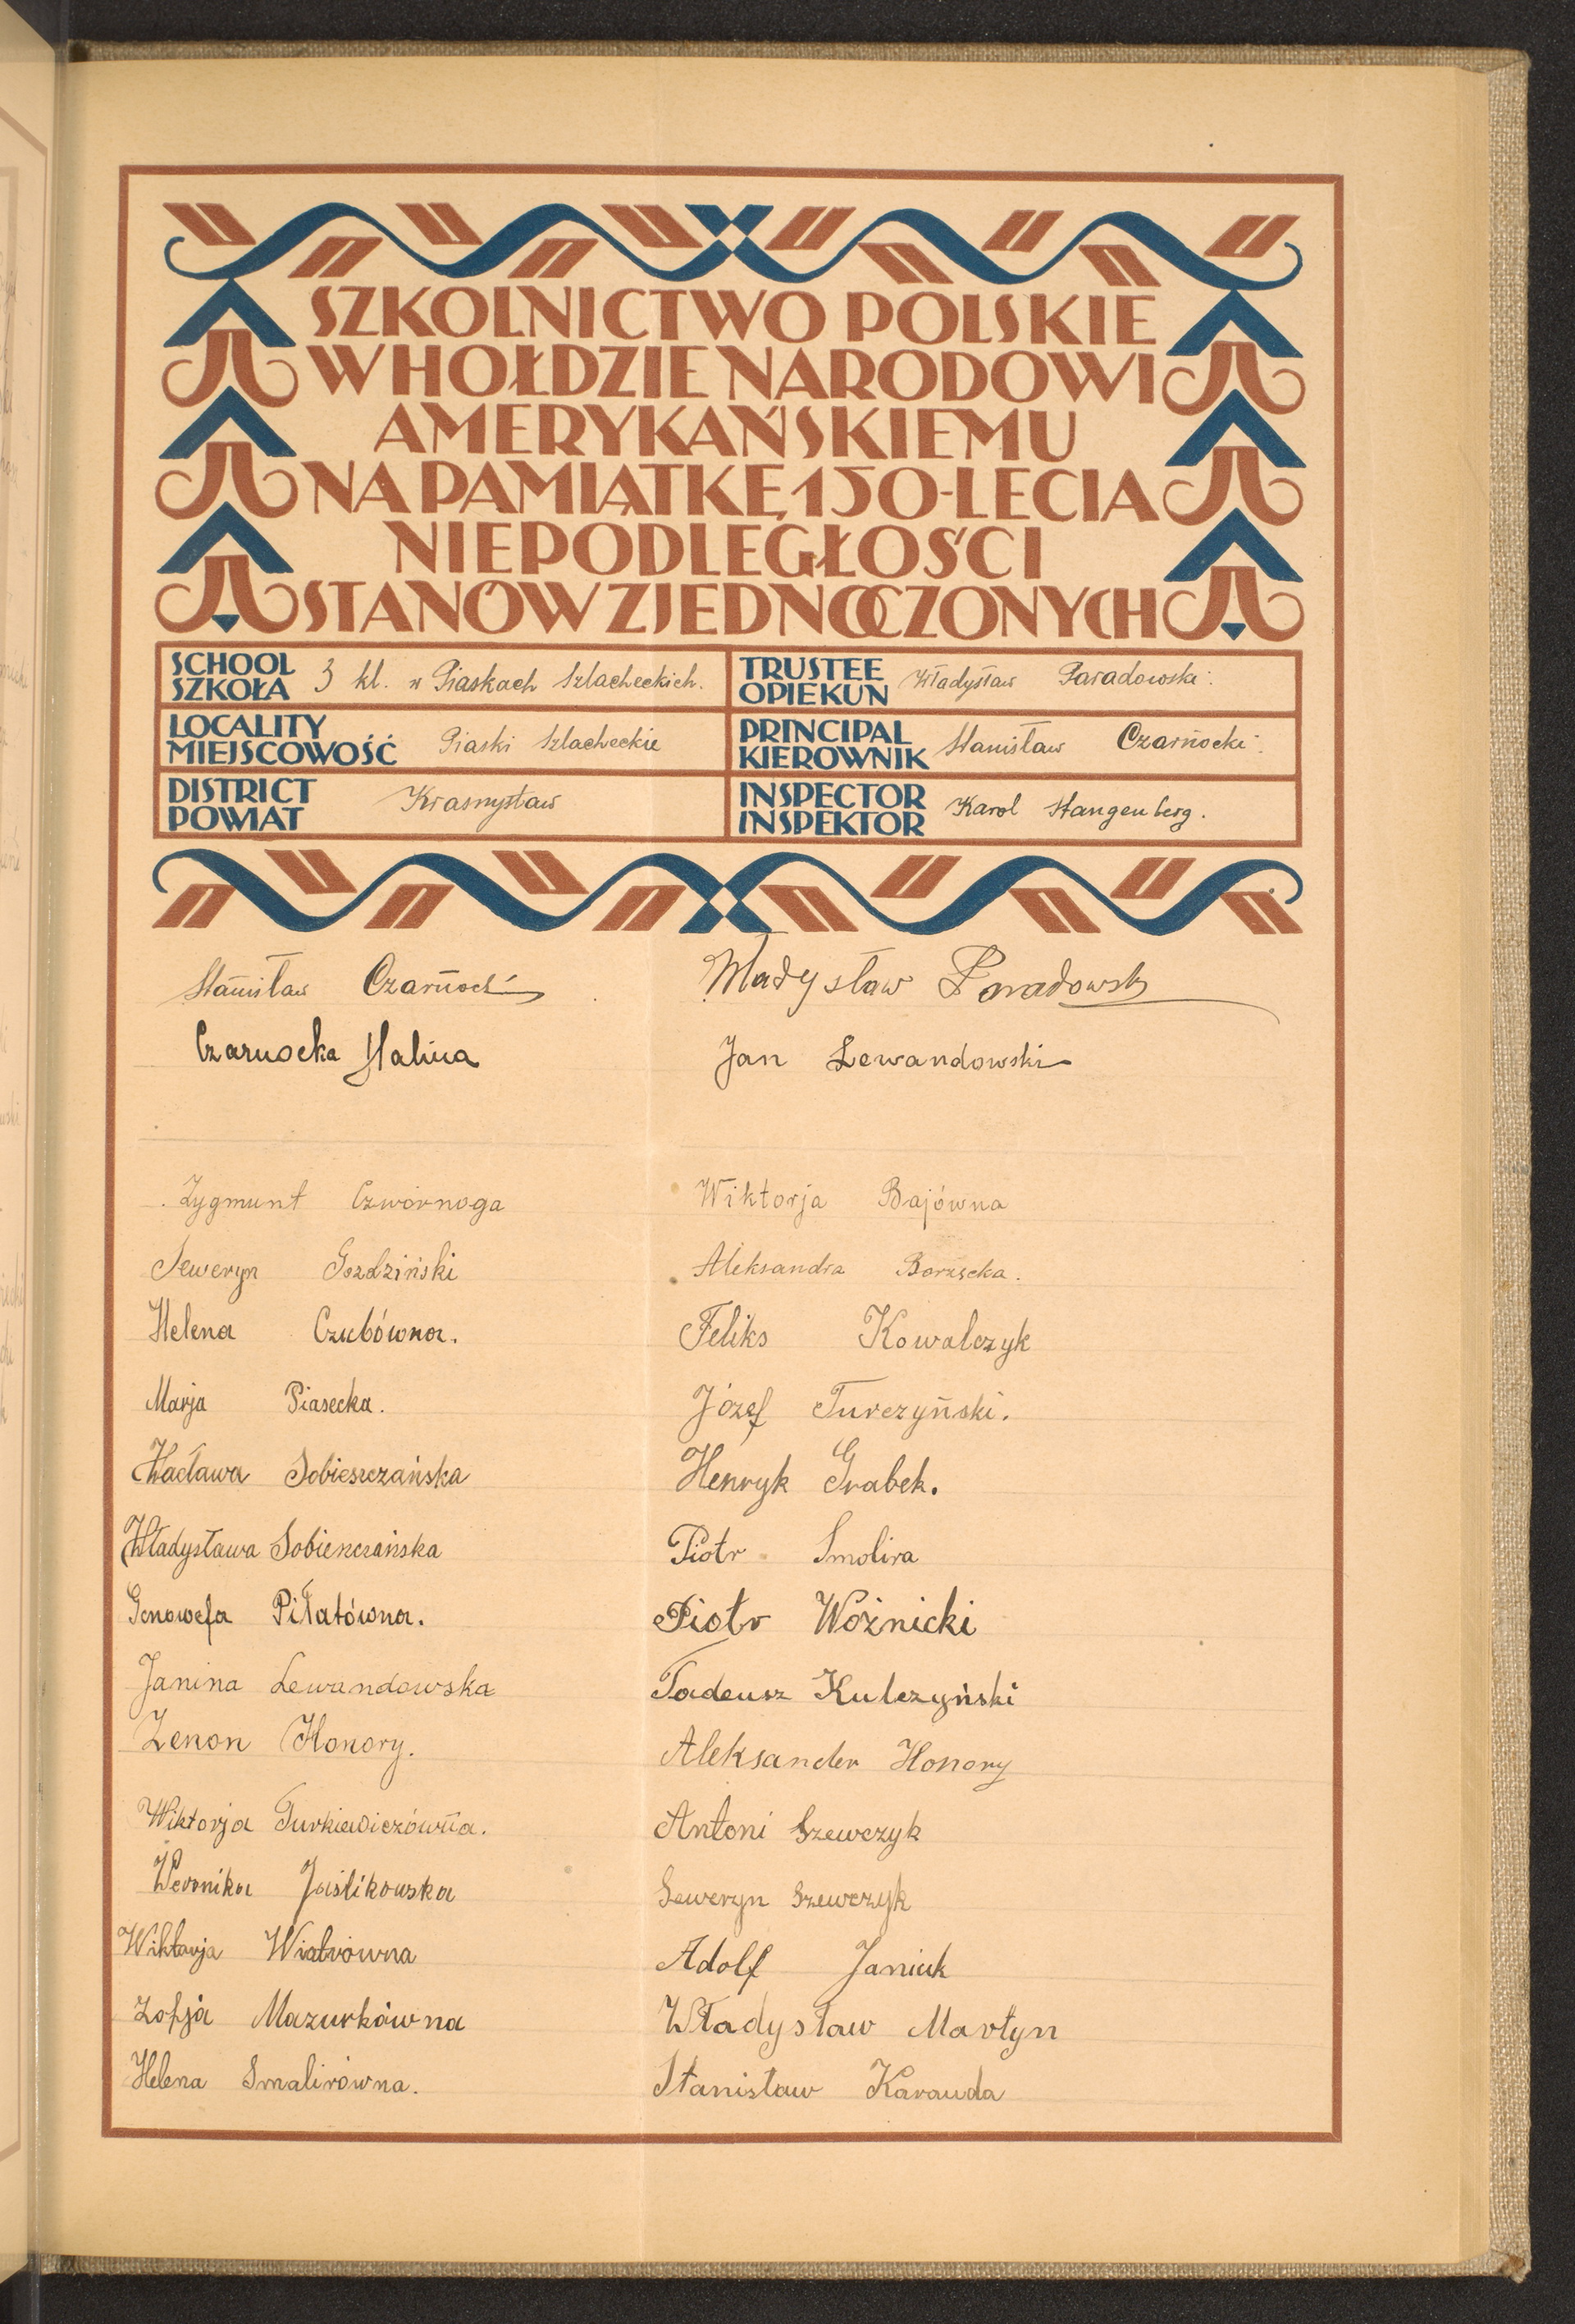 SZKOLNICTWO POLSKIE
W HOŁDZIE NARODOWI
AMERYKAŃSKIEMU
NA PAMIĄTKĘ 150-LECIA
NIEPODLEGŁOŚCI
STANÓW ZJEDNOCZONYCH
SCHOOL
SZKOŁA 3 kl. w Piaskach Szlacheckich.
TRUSTEE
OPIEKUN Władysław Paradowski.
LOCALITY
MIEJSCOWOŚĆ Piaski Szlacheckie
PRINCIPAL
KIEROWNIK Stanisław Czarnocki.
DISTRICT
POWIAT Krasnystaw
INSPECTOR
INSPEKTOR Karol Stangenberg.
Stanisław Czarnocki
Władysław Paradowski
Czarnocka Halina
Jan Lewandowski
Zygmunt Czwórnoga
Wiktorja Bajówna
Seweryn Gozdziński
Aleksandra Borzęcka.
Helena Czubówna.
Feliks Kowalczyk
Marja Piasecka.
Józef Turczyński.
Wacława Sobieszczańska
Henryk Grabek.
Władysława Sobieszczańska
Piotr Smolira
Genowefa Piłatówna.
Piotr Woźnicki
Janina Lewandowska
Tadeusz Kulczyński
Zenon Honory.
Aleksander Honory
Wiktorja Turkiewiczówna.
Antoni Szewczyk
Weronika Jaślikowska
Seweryn Szewczyk
Wiktorja Wiatrówna
Adolf Janiuk
Zofja Mazurkówna
Władysław Martyn
Helena Smalirówna.
Stanisław Karauda